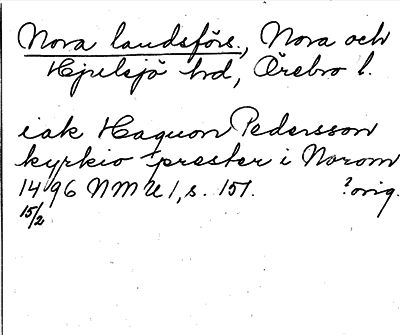 Nora landsförs., Nora och
Hjulsjö hd, Örebro l.
iak Haquon Pedersson
kyrkio prester i Norom
1496 NMU 1, s. 151. ?orig.
15/2